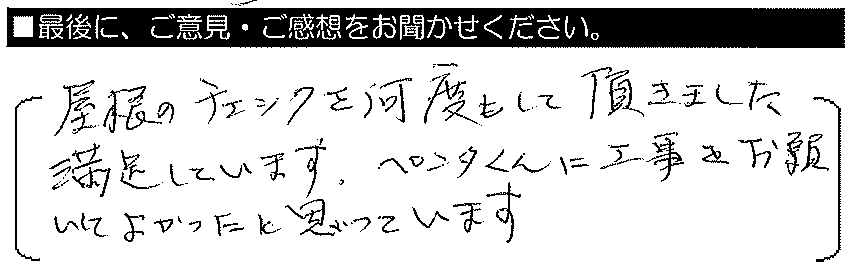 ■最後に、ご意見・ご感想をお聞かせください。
屋根のチェックを何度もして頂きました
満足しています。ペンタくんに工事をお願
いしてよかったと思っています